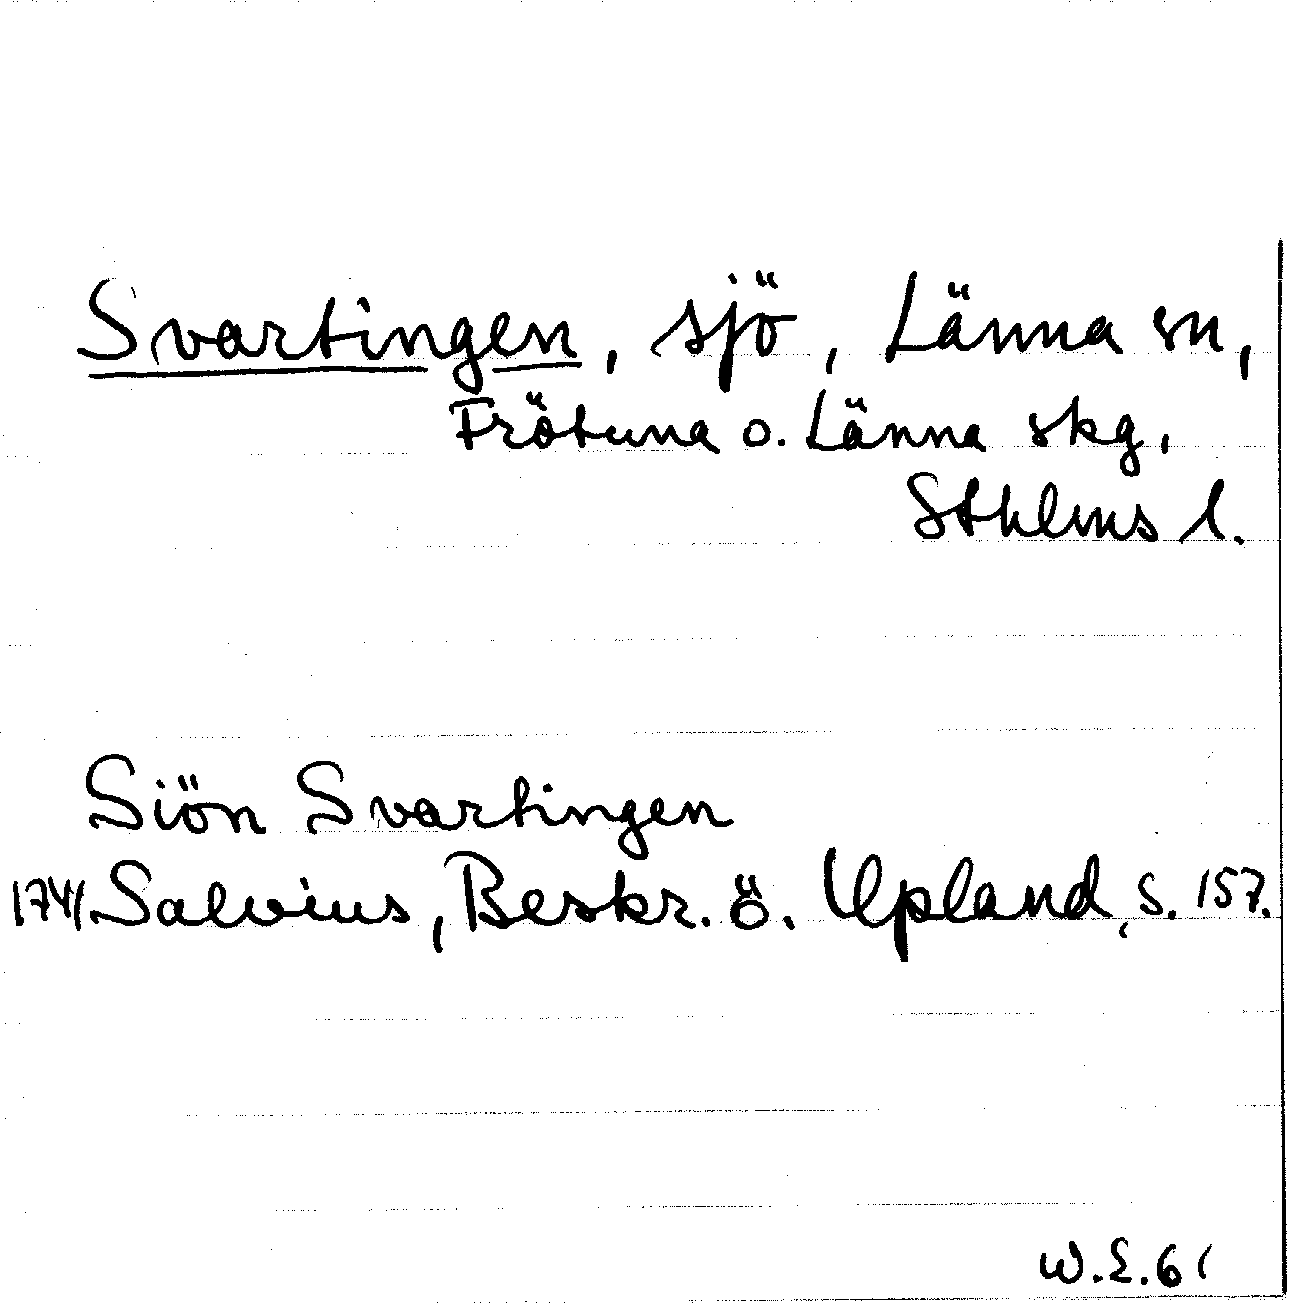 Svartingen, sjö, Länna sn,
Frötuna o. Länna skg.
Sthlms l.
Siön Svartingen
1741 Salvius, Beskr. ö. Upland, s. 157.
W.E.61